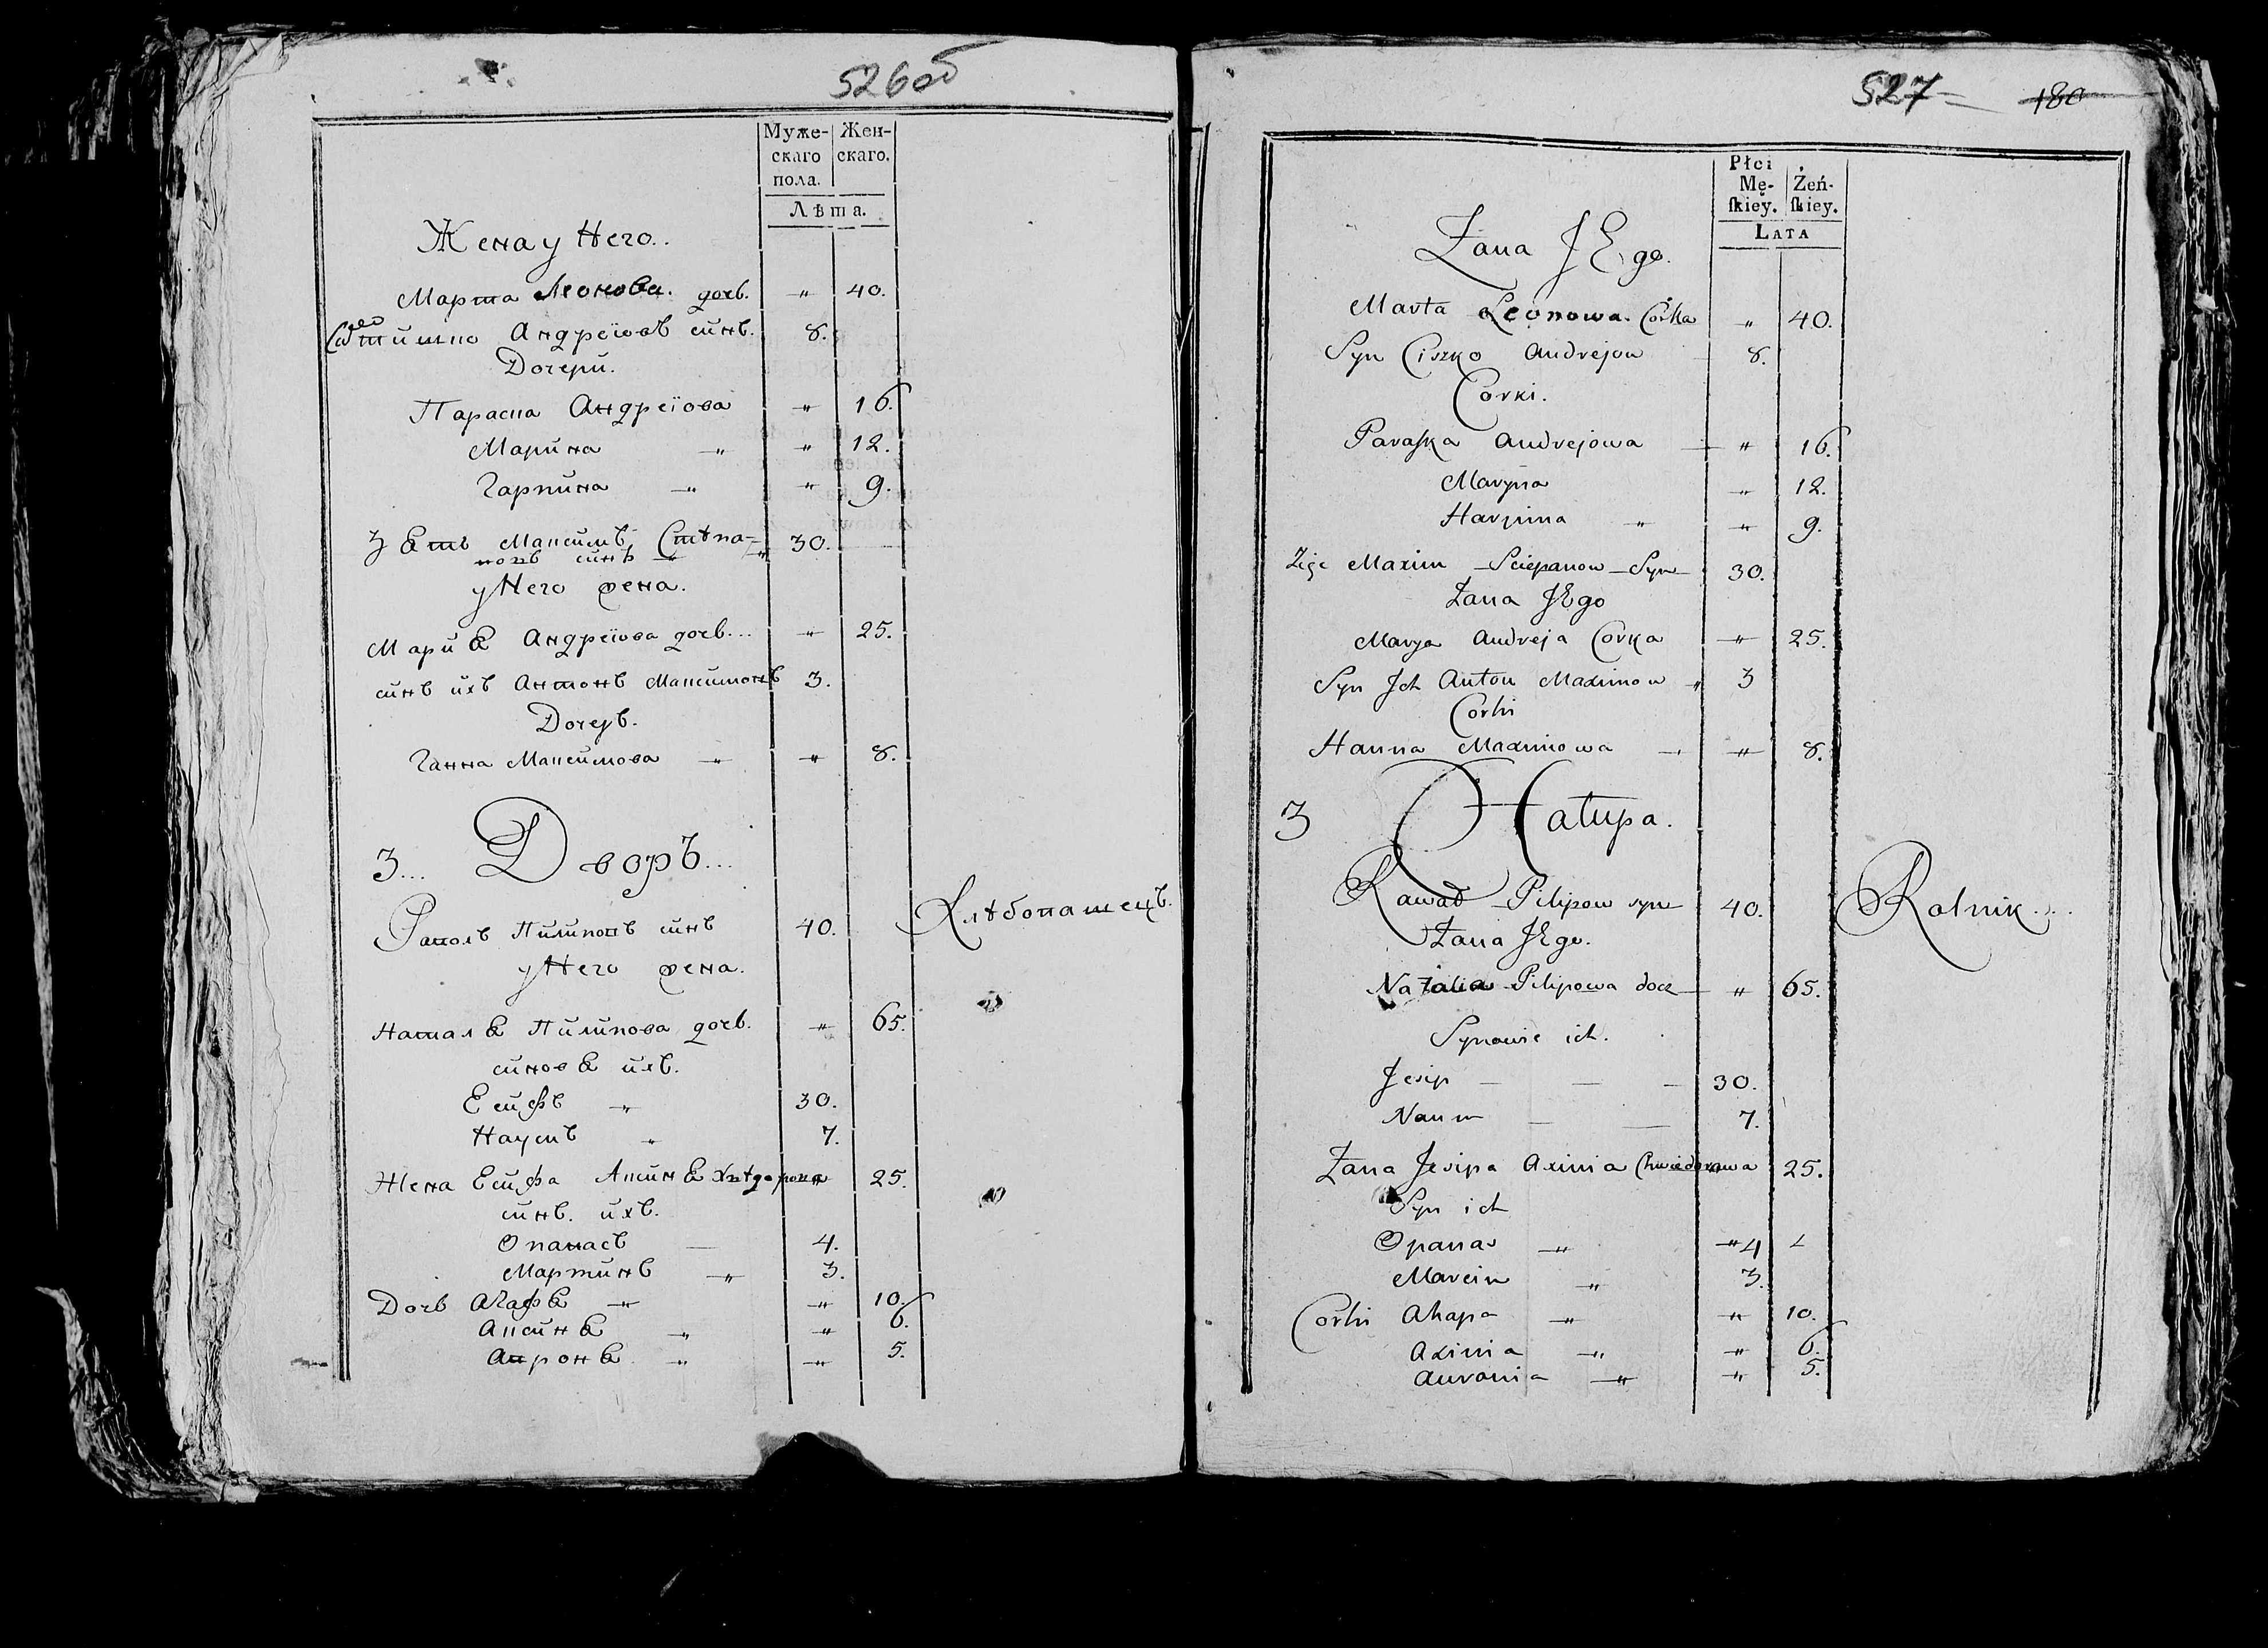 526об
Муже- Жен-
скаго скаго.
пола.
Лѣта.
Жена у Него..
Марта Леонова. дочь. " 40.
Тишко Андреіовъ синъ. 8.
Дочери.
Параска Андреіова " 16.
Марина " " 12.
Гарпина " " 9.
Зять Максимъ Стѣпа- 30.
новъ синъ "
у Него жена.
Мария Андреіова дочь... " 25.
синъ ихъ Антонъ Максимовъ 3.
Дочерь.
Ганна Максимова " " 8.
3... Дворъ...
Пилиповъ синъ 40. Хлѣбопашецъ.
у Него жена.
Наталя Пилипова дочь. " 65.
синовя ихъ.
Есифъ " 30.
Наумъ " 7.
Жена Есифа Аксиня Хвѣдорова 25.
синъ. ихъ.
Опанасъ — 4.
Мартинъ " 3.
Дочь Агафя " " 10.
Аксиня " " 6.
" " 5.
527 180
Płci
Mę- Żeń-
ſkiey. ſkiey.
LATA
Żana JEgo.
Marta Leonowa. Corka " 40.
Syn Ciszko Andrejow 8.
Corki.
Paraſka Andrejowa — " 16.
Maryna " 12.
Harpina " " 9.
Zięc Maxim Sciepanow Syn 30.
Żana JEgo
Marya Andreja Corka " 25.
Syn Jch Anton Maximow " 3
Corki
Hanna Maximowa — " 8.
3 Hatupa.
Pilipow syn 40. Rolnik...
Żana JEgo.
Natalia Pilipowa docz " 65.
Synowie ich.
Jesip — — — 30.
Naum — — 7.
Żana Jesipa Axinia Chwiedorowa 25.
Syn ich
Opanas " " 4
Marcin " 3.
Corki Ahapa " " 10.
Axinia " " 6.
" " 5.